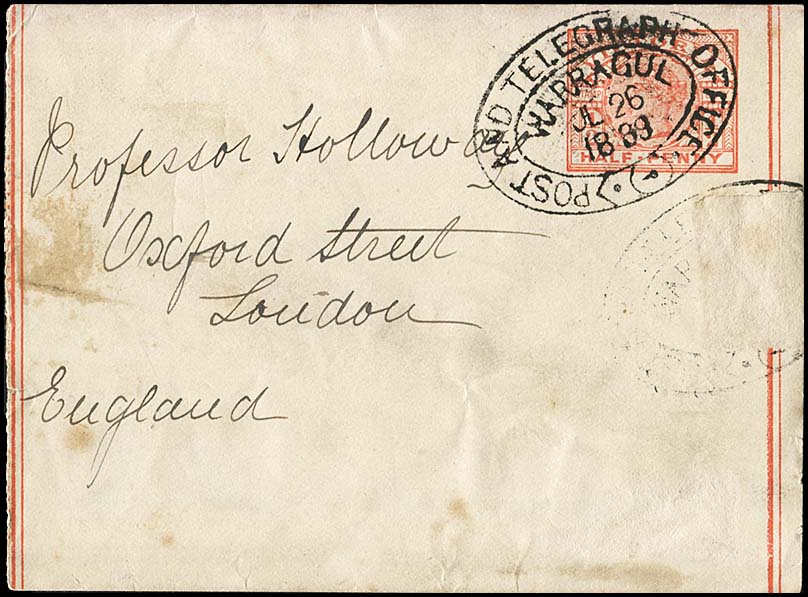 POST AND TELEGRAPH OFFICE
WARRAGUL
JL 26
1889
HALF-PENNY
Professor Holloway
Oxford Street
London
England